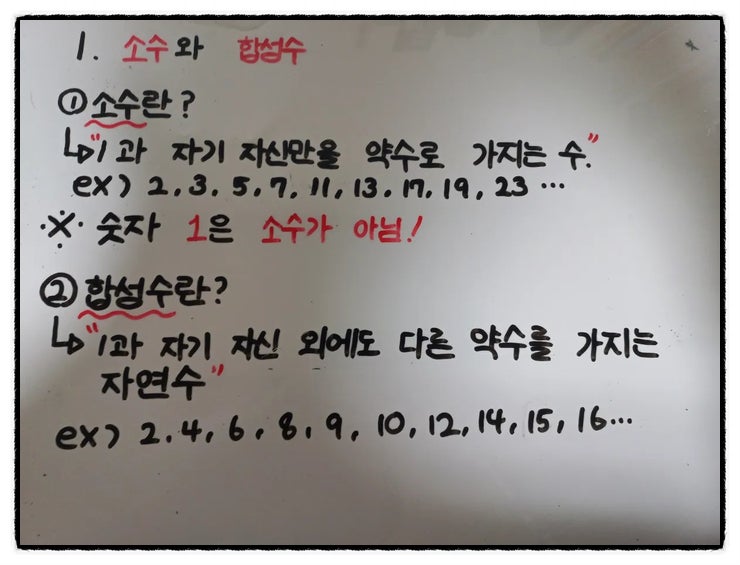 1. 소수와 합성수
① 소수란?
↳ "1과 자기 자신만을 약수로 가지는 수."
ex) 2, 3, 5, 7, 11, 13, 17, 19, 23 …
※ 숫자 1은 소수가 아님!
② 합성수란?
↳ "1과 자기 자신 외에도 다른 약수를 가지는
자연수"
ex) 2, 4, 6, 8, 9, 10, 12, 14, 15, 16…